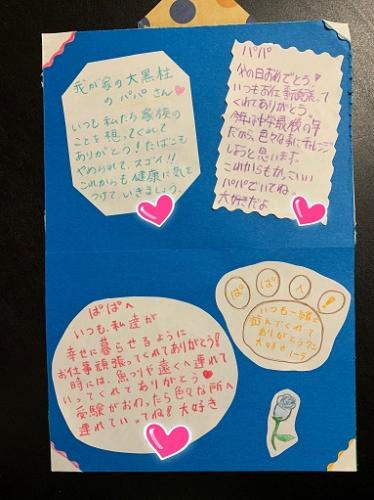 我が家の大黒柱
のパパさん
いつも私たち家族の
ことを想ってくれて
ありがとう!たばこも
やめられて、スゴイ!!
これからも健康に気を
つけていきましょう。
パパ
父の日おめでとう
いつもお仕事頑張って
くれてありがとう。
今年は中学最後の年
だから、色々な事にチャレンジ
しようと思います。
これからもかっこいい
パパでいてね
大好きだよ
ぱぱへ
いつも、私達が
幸せに暮らせるように
お仕事頑張ってくれてありがとう!
時には、魚つりや遠くへ連れて
いってくれてありがとう
受験がおわったら色々な所へ
連れていってね!大好き
ぱぱへ!
いつも一緒に
遊んでくれて
ありがとうワン
大好き